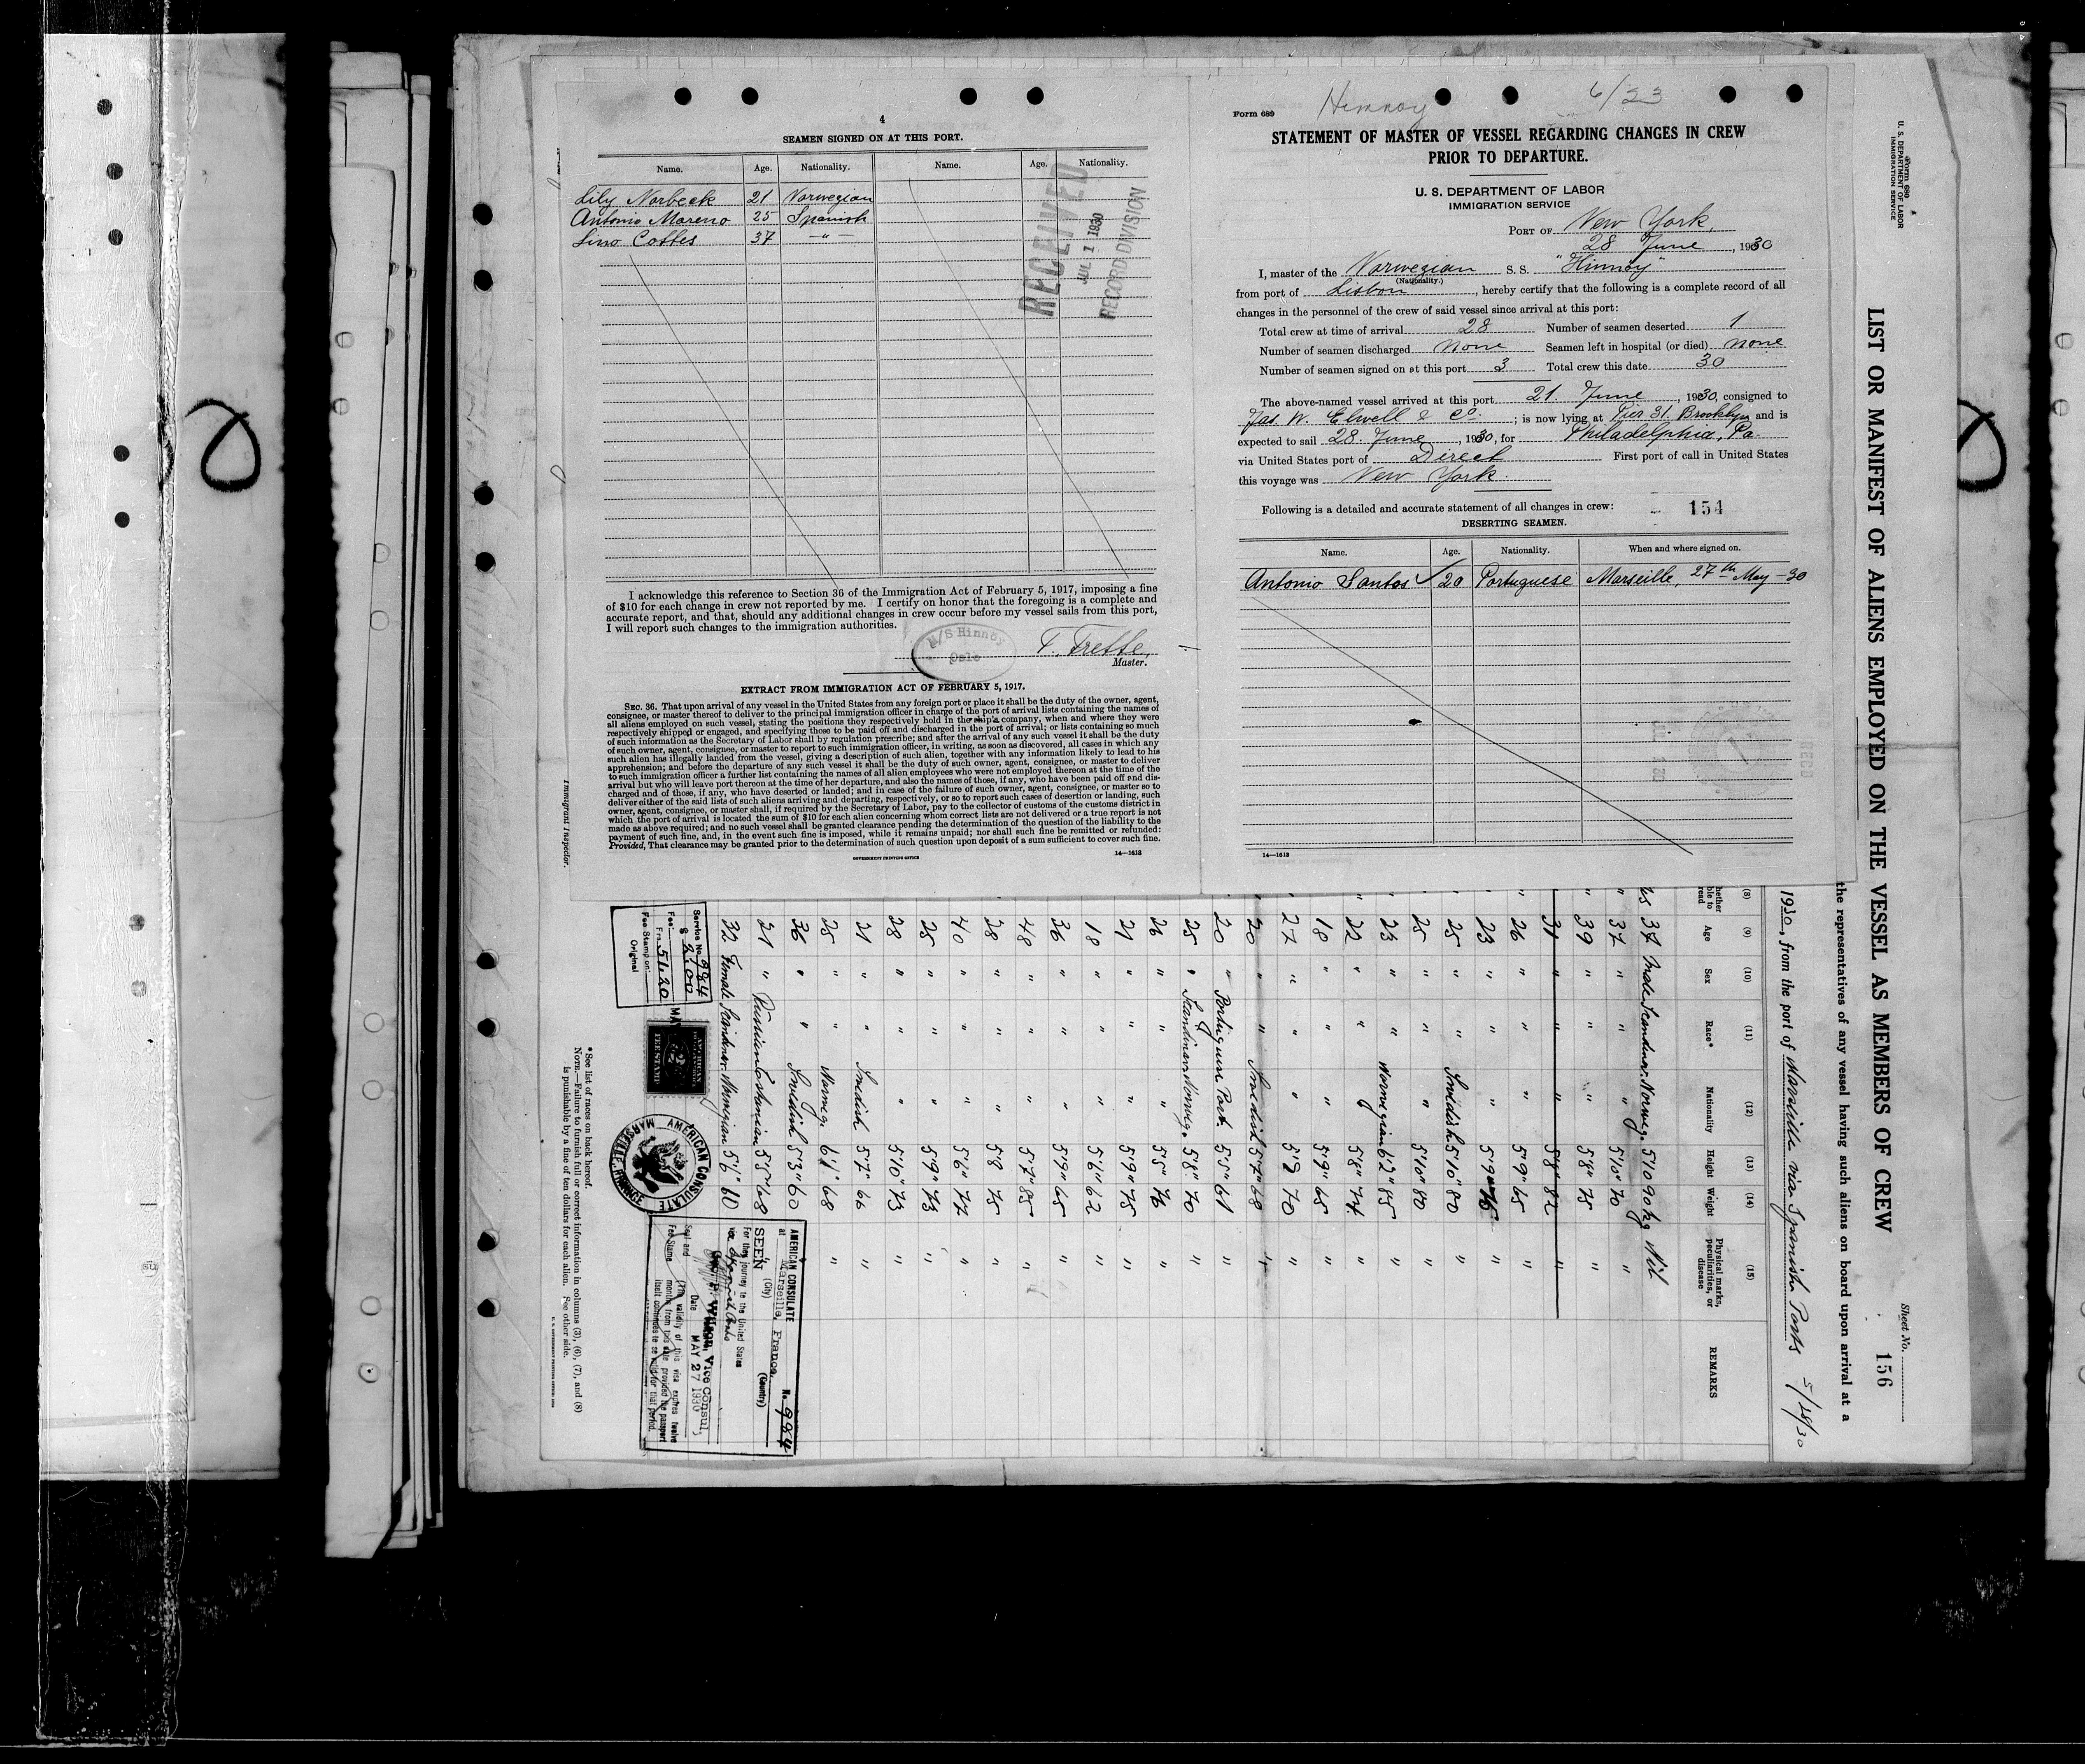 4
SEAMEN SIGNED ON AT THIS PORT.
Name. Age. Nationality. Name. Age. Nationality.
Lily Norbeck 21 Norwegian
Antonio Moreno 25 Spanish
Lino Cottes 37 — " —
RECEIVED
JUL 1 1930
RECORD DIVISION
I acknowledge this reference to Section 36 of the Immigration Act of February 5, 1917, imposing a fine
of $10 for each change in crew not reported by me. I certify on honor that the foregoing is a complete and
accurate report, and that, should any additional changes in crew occur before my vessel sails from this port,
I will report such changes to the immigration authorities.
M/S Hinnöy
Oslo
T. Trette,
Master.
EXTRACT FROM IMMIGRATION ACT OF FEBRUARY 5, 1917.
SEC. 36. That upon arrival of any vessel in the United States from any foreign port or place it shall be the duty of the owner, agent,
consignee, or master thereof to deliver to the principal immigration officer in charge of the port of arrival lists containing the names of
all aliens employed on such vessel, stating the positions they respectively hold in the ship's company, when and where they were
respectively shipped or engaged, and specifying those to be paid off and discharged in the port of arrival; or lists containing so much
of such information as the Secretary of Labor shall by regulation prescribe; and after the arrival of any such vessel it shall be the duty
of such owner, agent, consignee, or master to report to such immigration officer, in writing, as soon as discovered, all cases in which any
such alien has illegally landed from the vessel, giving a description of such alien, together with any information likely to lead to his
apprehension; and before the departure of any such vessel it shall be the duty of such owner, agent, consignee, or master to deliver
to such immigration officer a further list containing the names of all alien employees who were not employed thereon at the time of the
arrival but who will leave port thereon at the time of her departure, and also the names of those, if any, who have been paid off and dis-
charged and of those, if any, who have deserted or landed; and in case of the failure of such owner, agent, consignee, or master so to
deliver either of the said lists of such aliens arriving and departing, respectively, or so to report such cases of desertion or landing, such
owner, agent, consignee, or master shall, if required by the Secretary of Labor, pay to the collector of customs of the customs district in
which the port of arrival is located the sum of $10 for each alien concerning whom correct lists are not delivered or a true report is not
made as above required; and no such vessel shall be granted clearance pending the determination of the question of the liability to the
payment of such fine, and, in the event such fine is imposed, while it remains unpaid; nor shall such fine be remitted or refunded:
Provided, That clearance may be granted prior to the determination of such question upon deposit of a sum sufficient to cover such fine.
GOVERNMENT PRINTING OFFICE 14—1613
Form 689 Hinnoy 6/23
STATEMENT OF MASTER OF VESSEL REGARDING CHANGES IN CREW
PRIOR TO DEPARTURE.
U. S. DEPARTMENT OF LABOR
IMMIGRATION SERVICE
PORT OF New York,
28 June, 1930
I, master of the Norwegian S. S. "Hinnöy"
(Nationality.)
from port of Lisbon, hereby certify that the following is a complete record of all
changes in the personnel of the crew of said vessel since arrival at this port:
Total crew at time of arrival 28 Number of seamen deserted 1
Number of seamen discharged none Seamen left in hospital (or died) none
Number of seamen signed on at this port 3 Total crew this date 30
The above-named vessel arrived at this port 21. June, 1930, consigned to
Jas. W. Elwell & Co.; is now lying at Pier 31. Brooklyn and is
expected to sail 28. June, 1930, for Philadelphia, Pa.
via United States port of Direct First port of call in United States
this voyage was New York.
Following is a detailed and accurate statement of all changes in crew: 154
DESERTING SEAMEN.
Name. Age. Nationality. When and where signed on.
Antonio Santos ✓ 20 Portuguese Marseille, 27th May -30
14—1613
Form 680
U. S. DEPARTMENT OF LABOR
IMMIGRATION SERVICE
LIST OR MANIFEST OF ALIENS EMPLOYED ON THE VESSEL AS MEMBERS OF CREW
Sheet No. 156
the representatives of any vessel having such aliens on board upon arrival at a
1930, from the port of Marseille via Spanish Ports 5/28/30
(8) (9) (10) (11) (12) (13) (14) (15)
Age Sex Race* Nationality Height Weight Physical marks, peculiarities, or disease REMARKS
37 Male Scandinav. Norweg. 5'10 90 kg Nil
37 " " " 5'10" 70 "
39 " " " 5'8" 75 "
31 " " " 5'8" 82 "
26 " " " 5'9" 65 "
23 " " " 5'9" "
25 " " Swedish 5'10" 80 "
25 " " " 5'10" 80 "
23 " " Norwegian 6'2" 85 "
22 " " " 5'8" 74 "
18 " " " 5'9" 65 "
27 " " " 5'9 70 "
20 " " Swedish 5'7" 68 "
20 " Portuguese Port. 5'5" 61 "
25 " Scandinav Norweg. 5'8" 70 "
26 " " " 5'5" 76 "
21 " " " 5'9" 75 "
18 " " " 5'6" 62 "
36 " " " 5'9" 65 "
48 " " " 5'7" 85
28 " " " 5'8 75 "
40 " " " 5'6" 77 "
25 " " " 5'9" 73 "
28 " " " 5'10" 73 "
21 " " Swedish 5'7" 66 "
25 " " Norweg. 6'1" 68 "
36 " " Swedish 5'3" 60
21 " Russian Esthonian 5'5" 68
32 Female Scandinav. Norwegian 5'6" 60
Service No. 994
Fee: $ 2.00
Frs. 51.20
Fee Stamp on:
Original
AMERICAN
FEE STAMP
AMERICAN CONSULATE
MARSEILLE, FRANCE
AMERICAN CONSULATE No. 994
at Marseille, France.
(City) (Country)
SEEN
For the journey to the United States
via Spanish Ports
Wilson, Vice Consul,
Date MAY 27 1930
Seal and Fee Stamp
The validity of this visa expires twelve
months from this date provided the passport
itself continues to be valid for that period.
*See list of races on back hereof.
NOTE.—Failure to furnish full or correct information in columns (3), (6), (7), and (8)
is punishable by a fine of ten dollars for each alien. See other side.
Immigrant Inspector.